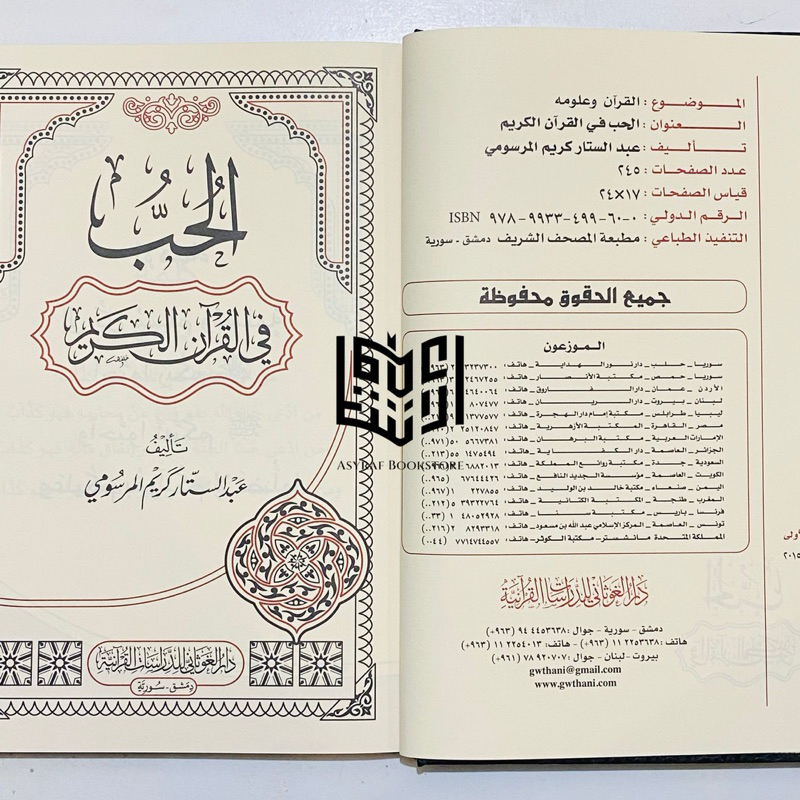 الموضوع : القرآن وعلومه
العنوان : الحب في القرآن الكريم
تأليف : عبد الستار كريم المرسومي
عدد الصفحات : ٢٤٥
قياس الصفحات : ١٧×٢٤
الرقم الدولي : ISBN ٩٧٨-٩٩٣٣-٤٩٩-٦٠-٠
التنفيذ الطباعي : مطبعة المصحف الشريف دمشق - سورية
جميع الحقوق محفوظة
الموزعون
سوريا - حلب - دار نور الهداية - هاتف :
سوريا - حمص - مكتبة الأنصار - هاتف :
الأردن - عمان - دار الفاروق - هاتف :
لبنان - بيروت - دار الريان - هاتف :
ليبيا - طرابلس - مكتبة إمام دار الهجرة - هاتف :
مصر - القاهرة - المكتبة الأزهرية - هاتف :
الإمارات العربية - مكتبة البرهان - هاتف : ٥٦٦٧٣٨١ ٥٠ (٩٧١..)
الجزائر - العاصمة - دار الكفاية - هاتف :
السعودية - جدة - مكتبة روائع المملكة - هاتف :
الكويت - العاصمة - مؤسسة الجديد النافع - هاتف : ٦٧٦٤٤٤٢٦ (٩٦٥..)
اليمن - صنعاء - مكتبة خالد بن الوليد - هاتف : ٢٢٧٨٥٥ ١ (٩٦٧..)
المغرب - طنجة - المكتبة الكتانية - هاتف : ٣٩٣٢٢٧٦٤ ٥ (٢١٢..)
فرنسا - باريس - مكتبة سنا - هاتف : ٤٨٠٥٢٩٢٨ ١ (٣٣..)
تونس - العاصمة - المركز الإسلامي عبد الله بن مسعود - هاتف : ٨٢٩٣٣١٨ ٢ (٢١٦..)
المملكة المتحدة مانشستر - مكتبة الكوثر - هاتف : ٧٧١٤٧٤٤٥٥٧ (٤٤..)
دار الغوثاني للدراسات القرآنية
دمشق - سورية - جوال : ٤٤٥٣٦٣٨ ٩٤ (٩٦٣+)
هاتف : ٢٢٥٣٦٣٨ ١١ (٩٦٣+) - هاتف : ٢٢٥٤٠١٣ ١١ (٩٦٣+)
بيروت - لبنان - جوال : ٧٨٩٢٠٧٠٧ (٩٦١+)
gwthani@gmail.com
www.gwthani.com
الحب
في القرآن الكريم
تأليف
عبد الستار كريم المرسومي
دار الغوثاني للدراسات القرآنية
دمشق - سورية
ASYRAF BOOKSTORE